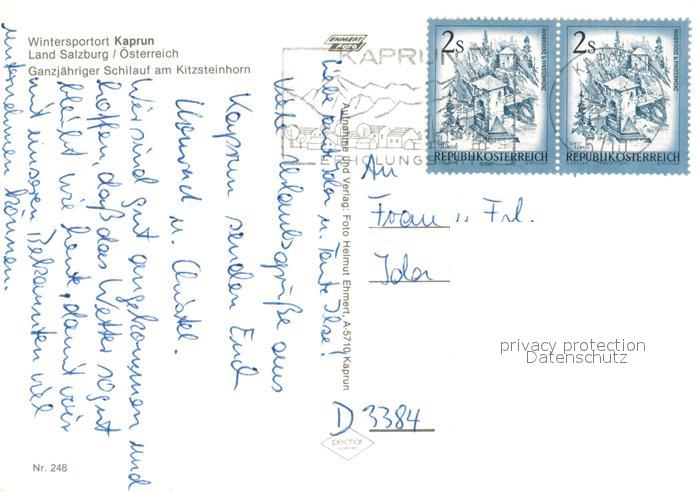 Wintersportort Kaprun
Land Salzburg / Österreich
Ganzjähriger Schilauf am Kitzsteinhorn
EHMERT
FOTO
KAPRUN
ERHOLUNGS
2s
REPUBLIK ÖSTERREICH
2s
REPUBLIK ÖSTERREICH
Liebe Ida u. Tante Ilse!
Viele Urlaubsgrüße aus
Kaprun senden Euch
Konrad u. Christel.
Wir sind gut angekommen und
hoffen, daß das Wetter so gut
bleibt wie heute, damit wir
mit unseren Bekannten viel
unternehmen können.
Aufnahme und Verlag: Foto Helmut Ehmert, A-5710 Kaprun
An
Frau u. Frl.
Ida
privacy protection
Datenschutz
D 3384
pechar
Nr. 248